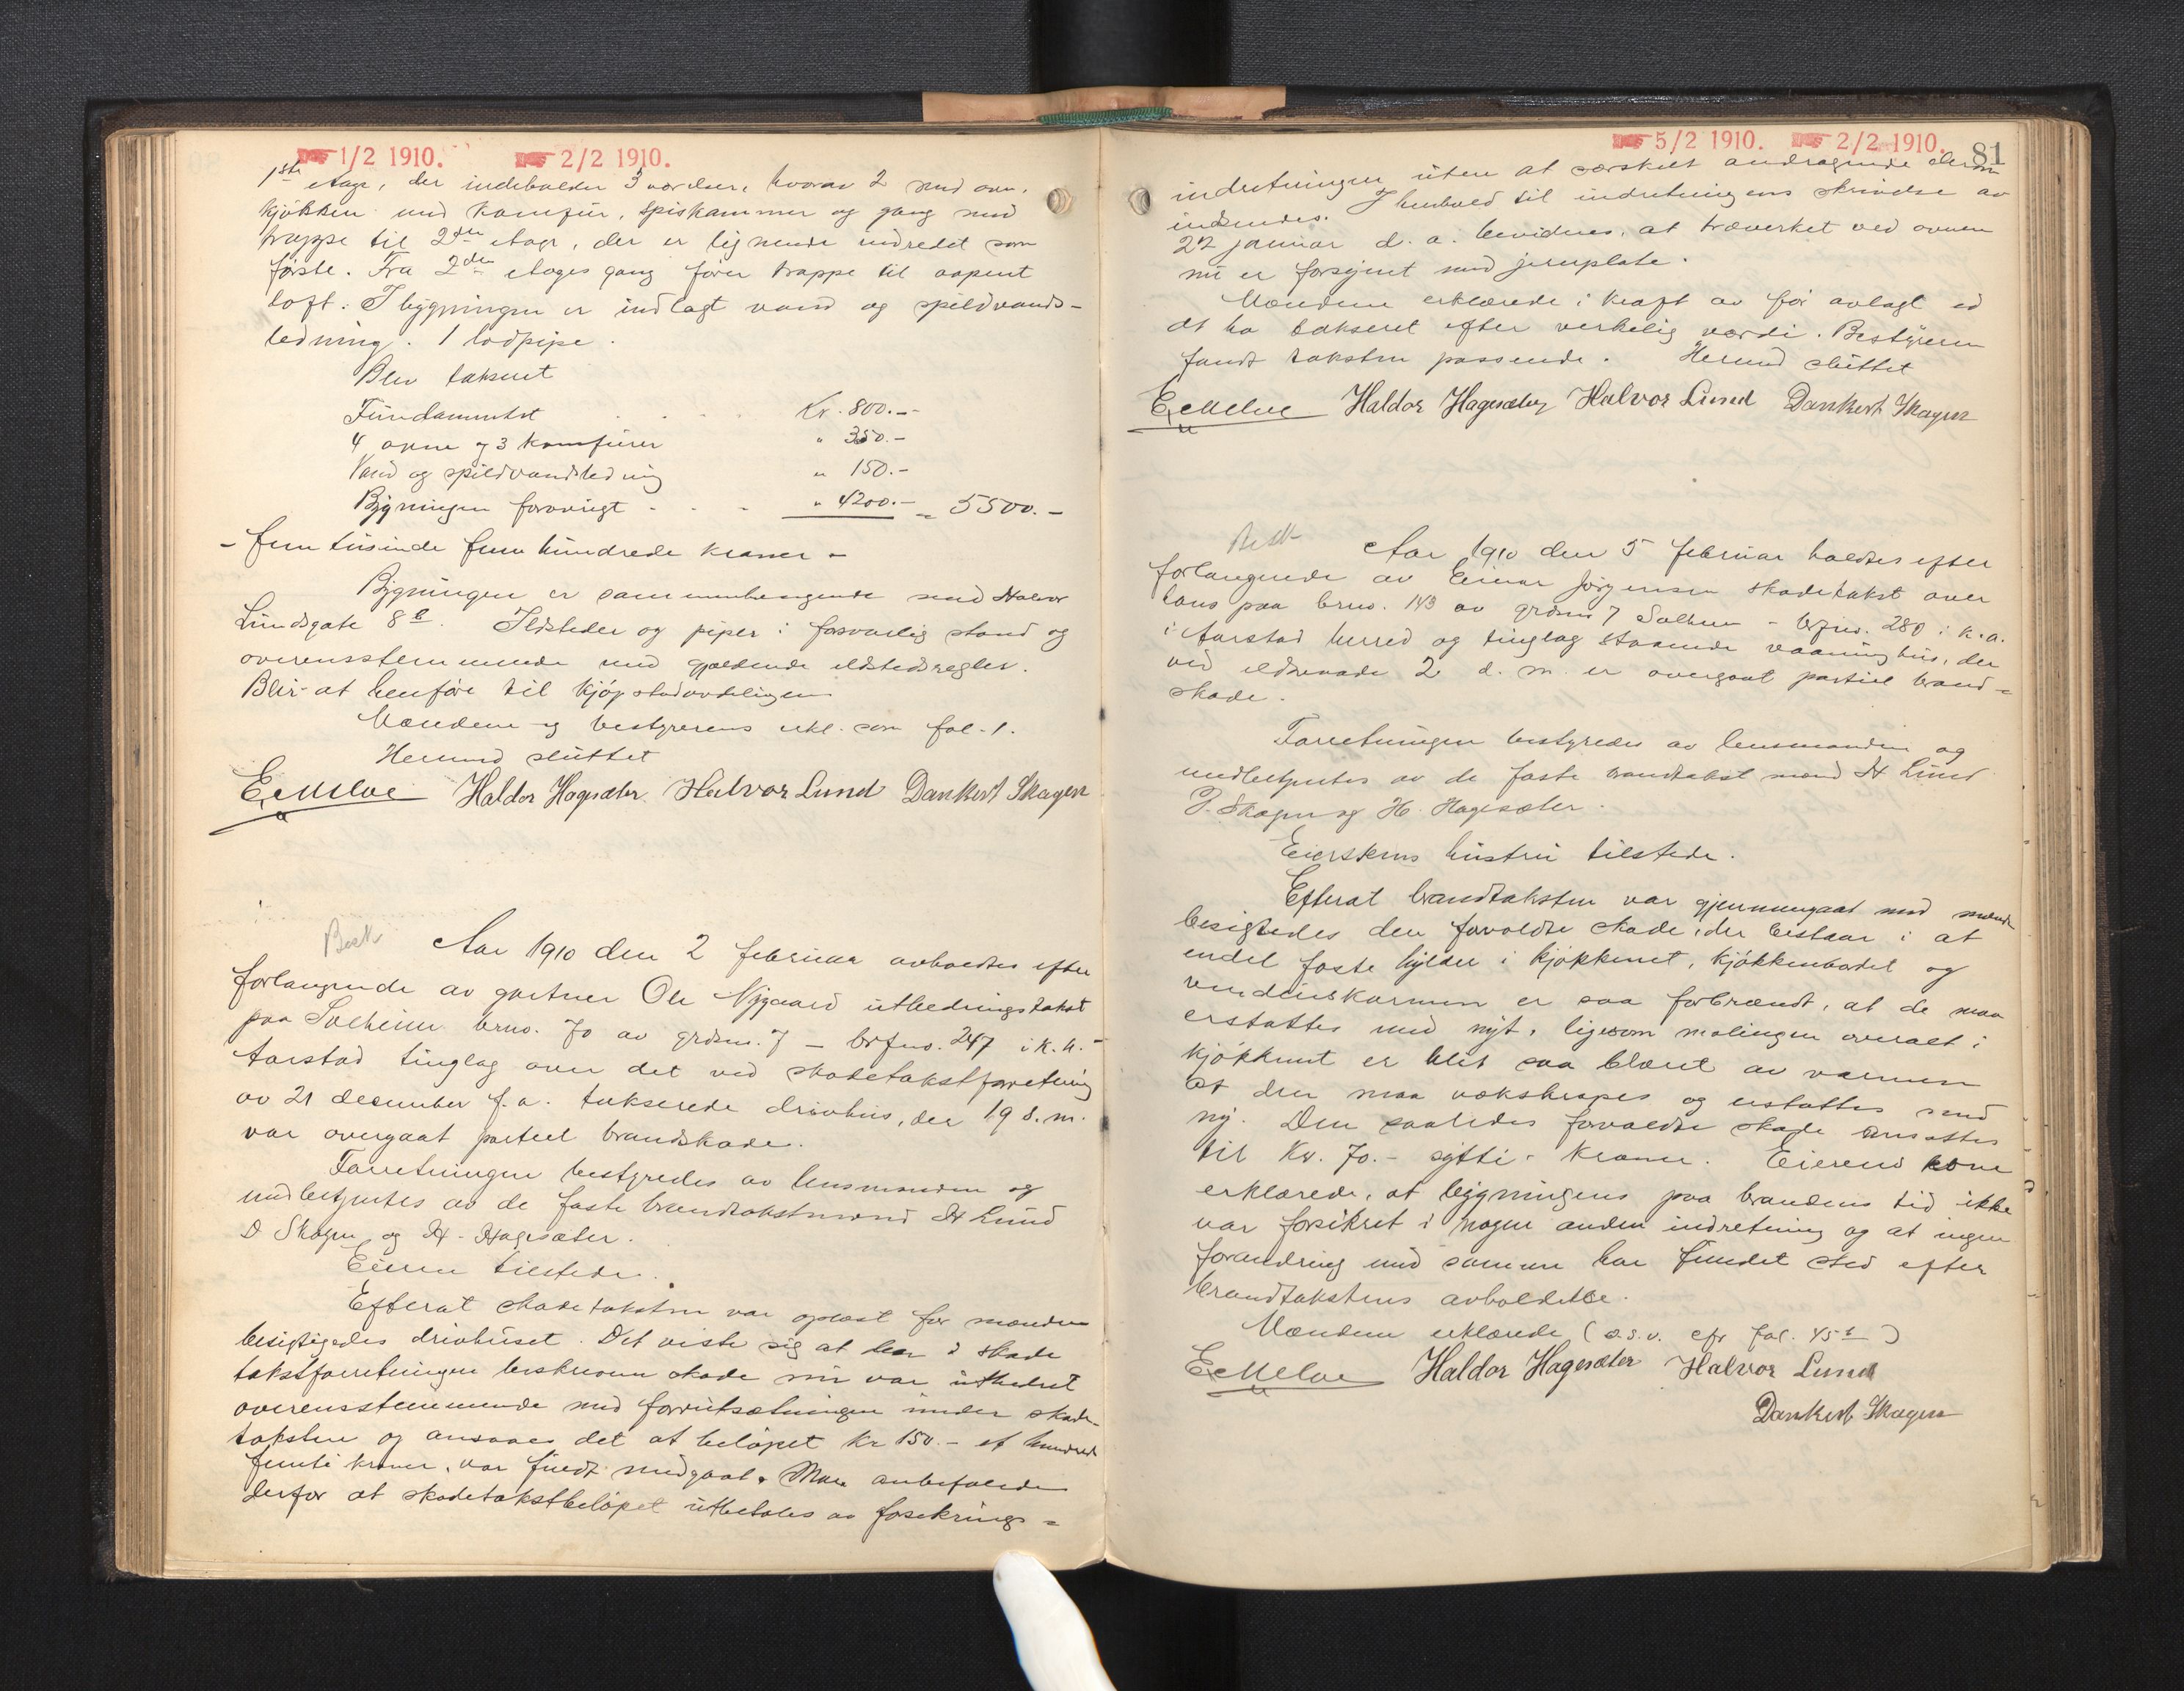 1/2 1910. 2/2 1910.
1ste etage, der indeholder 3 værelser, hvorav 2 med ovn,
kjøkken med komfur, spiskammer og gang med
trappe til 2den etage, der er lignende indredet som
første. Fra 2den etages gang fører trappe til aapent
loft. I bygningen er indlagt vand og spildvands-
ledning. 1 lodpipe.
Blev taksert
Fundamentet . . . Kr. 800.-
4 ovne og 3 komfurer " 350.-
Vand og spildvandsledning " 150.-
Bygningen forøvrigt . . . " 4200.- = 5500.-
- fem tusinde fem hundrede kroner -
Bygningen er sammenhengende med Halvor
Lundsgate 8b. Ildsteder og piper i forsvarlig stand og
overensstemmende med gjældende ildstedsregler.
Blir at henføre til kjøpstadavdelingen
Mændene og bestyrerens erkl. som fol. 1.
Hermed sluttet
E. Melve Haldor Hagesæter Halvor Lund Dankert Skagen
Besk
Aar 1910 den 2 februar avholdtes efter
forlangende av gartner Ole Nygaard utbedringstakst
paa Solheim brno. 70 av grdsno. 7 - brfno. 247 i k. a. -
Aarstad tinglag over det ved skadetakstforretning
av 21 december f.a. takserede drivhus, der 19 s.m.
var overgaat partiel brandskade.
Forretningen bestyredes av lensmanden og
medbetjentes av de faste brandtakstmænd H Lund
D Skagen og H. Hagesæter.
Eieren tilstede.
Efterat skadetaksten var oplæst for mændene
besigtigedes drivhuset. Det viste sig at den i skade
takstforretningen beskrevne skade nu var utbedret
overensstemmende med forutsætningen under skade-
taksten og ansaaes det at beløpet kr 150.- et hundrede
femti kroner, var fuldt medgaat. Man anbefalede
derfor at skadetakstbeløpet utbetales av forsikrings-
5/2 1910. 2/2 1910. 81
indretningen uten at særskilt andragende derom
indsendes. I henhold til indretningens skrivelse av
27 januar d.a. bevidnes, at træverket ved ovnen
nu er forsynet med jernplate.
Mændene erklærede i kraft av før avlagt ed
at ha taksert efter verkelig værdi. Bestyreren
fandt taksten passende. Hermed sluttet
E. Melve Haldor Hagesæter Halvor Lund Dankert Skagen
Besk
Aar 1910 den 5 februar holdtes efter
forlangende av Einar Jørgensen skadetakst over
hans paa brno. 143 av grdsno 7 Solheim - brfno. 280 i k.a.
i Aarstad herred og tinglag staaende vaaningshus, der
ved ildsvaade 2 d.m. er overgaat partiel brand-
skade.
Forretningen bestyredes av lensmanden og
medbetjentes av de faste brandtakstmænd H Lund
D. Skagen og H. Hagesæter.
Eierskens hustru tilstede.
Efterat brandtaksten var gjennemgaat med mændene
besigtedes den forvoldte skade, der bestaar i at
endel faste hylder i kjøkkenet, kjøkkenbordet og
vindueskarmen er saa forbrændt, at de maa
erstattes med nyt, ligesom malingen overalt i
kjøkkenet er blit saa blæret av varmen
at den maa vækskrapes og erstattes med
ny. Den saaledes forvoldte skade ansattes
til Kr. 70.- sytti - kroner. Eierens kone
erklærede, at bygningens paa brandens tid ikke
var forsikret i nogen anden indretning og at ingen
forandring med samme har fundet sted efter
brandtakstens avholdelse.
Mændene erklærede (o.s.v. cfr fol. 45b)
E. Melve Haldor Hagesæter Halvor Lund
Dankert Skagen